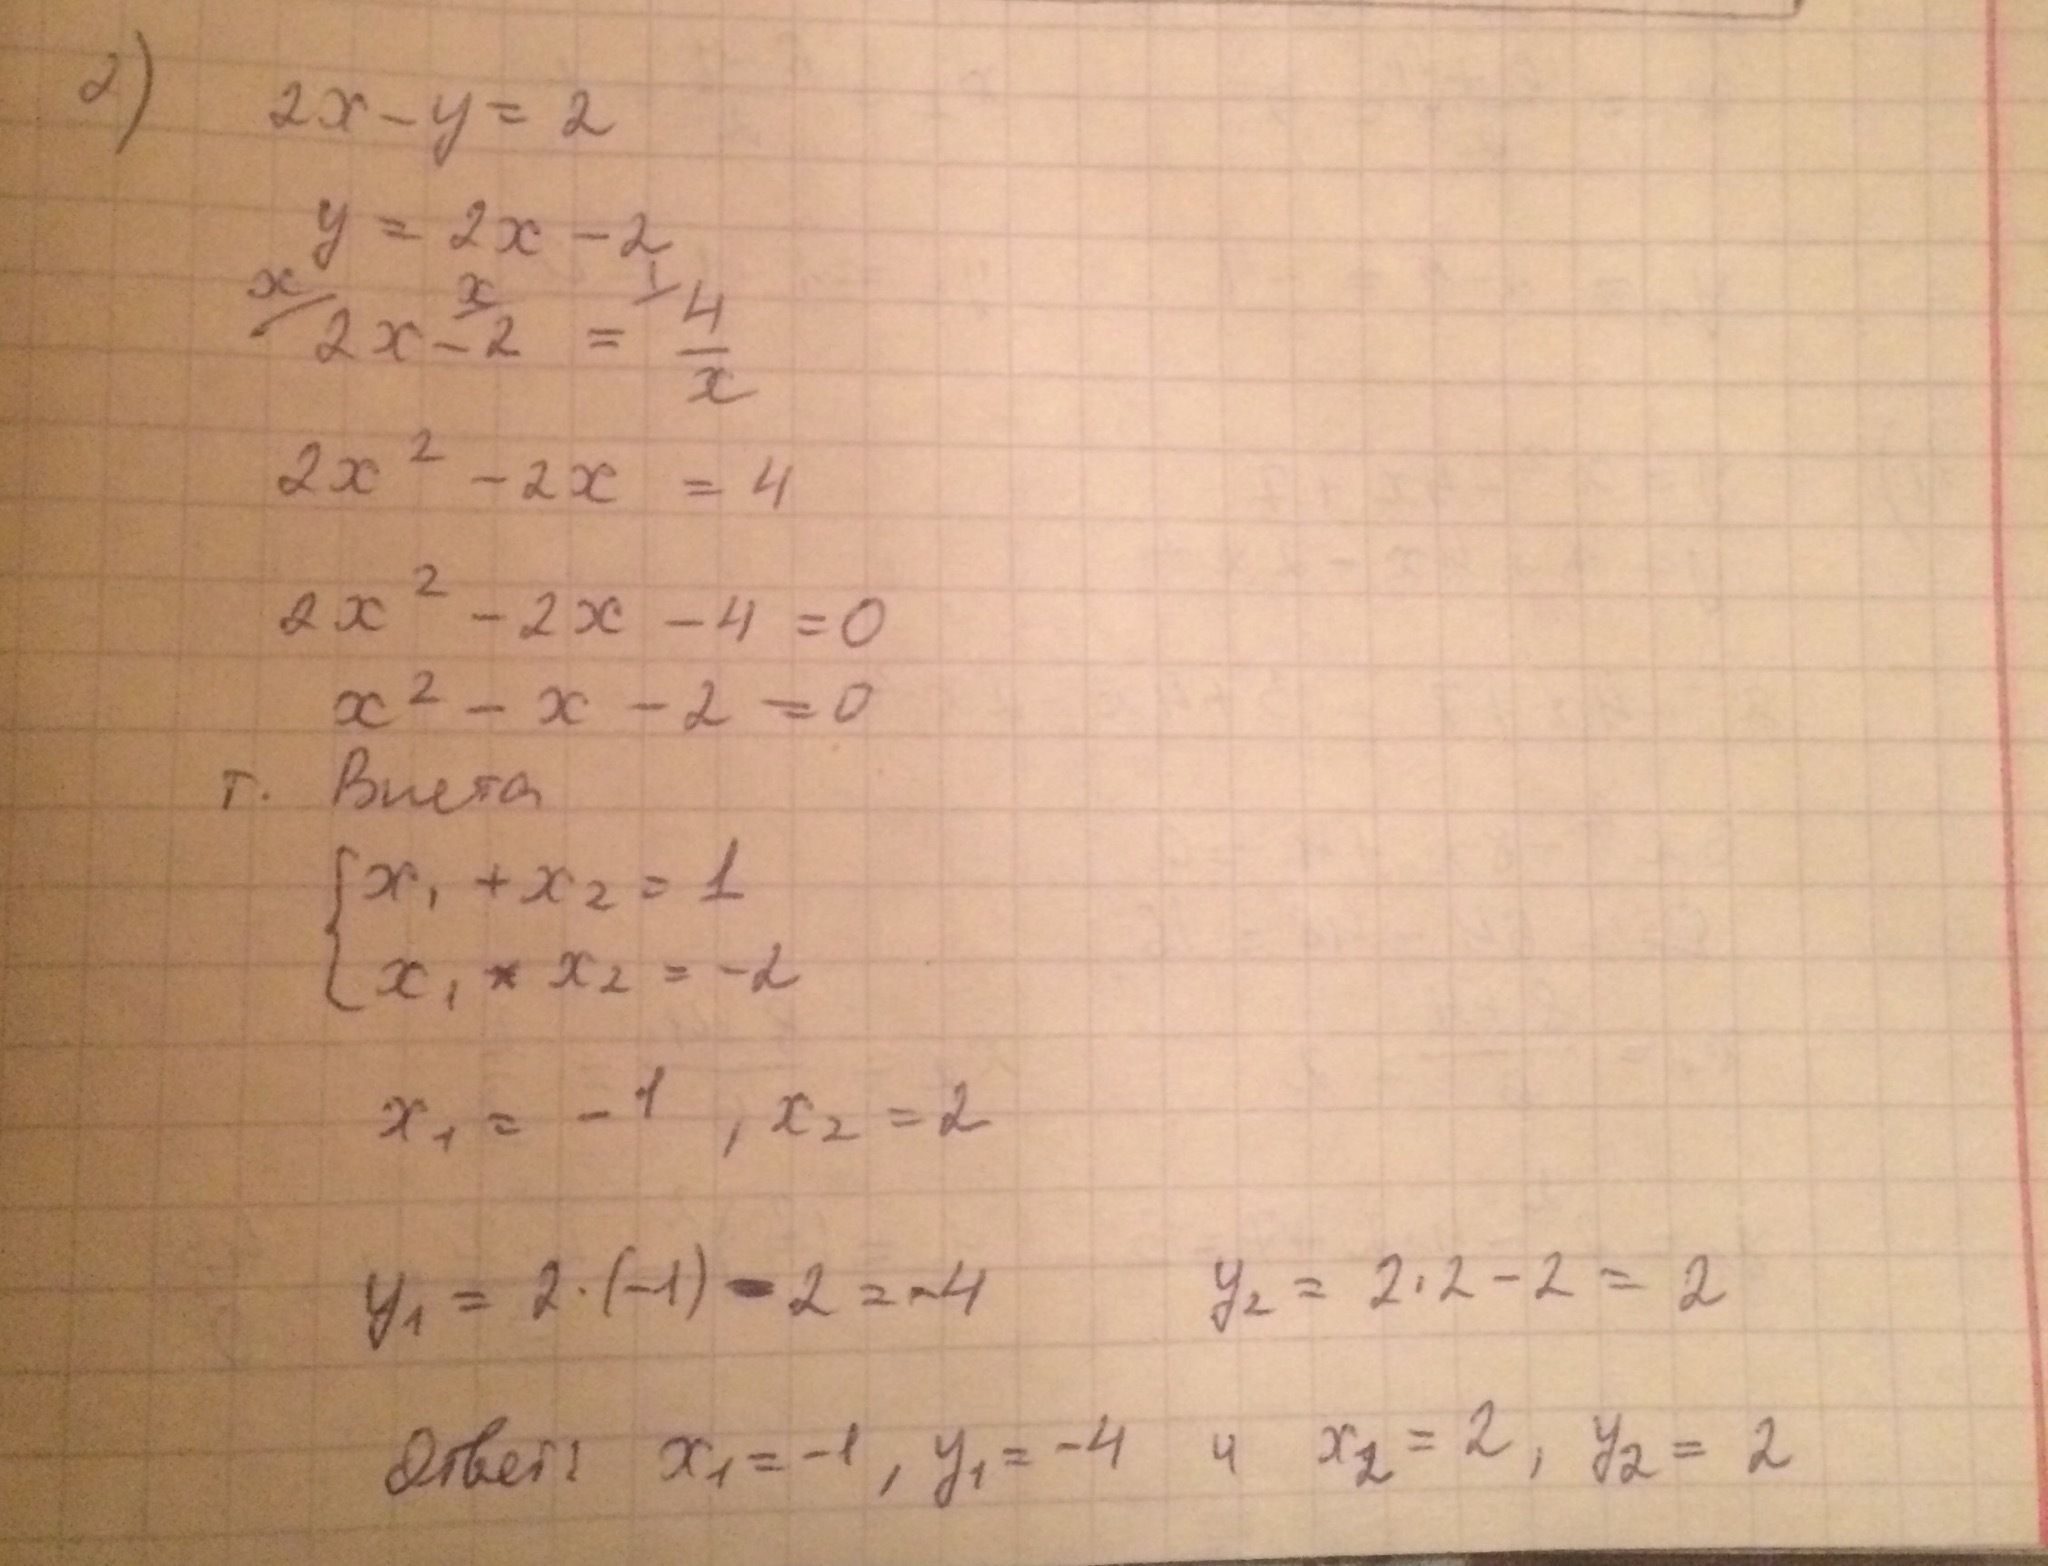 2) 2x - y = 2
y = 2x - 2
x x 1
2x - 2 = 4/x
2x² - 2x = 4
2x² - 2x - 4 = 0
x² - x - 2 = 0
т. Виета
{ x₁ + x₂ = 1
x₁ * x₂ = -2
x₁ = -1 , x₂ = 2
y₁ = 2·(-1) - 2 = -4 y₂ = 2·2 - 2 = 2
Ответ: x₁ = -1, y₁ = -4 и x₂ = 2, y₂ = 2